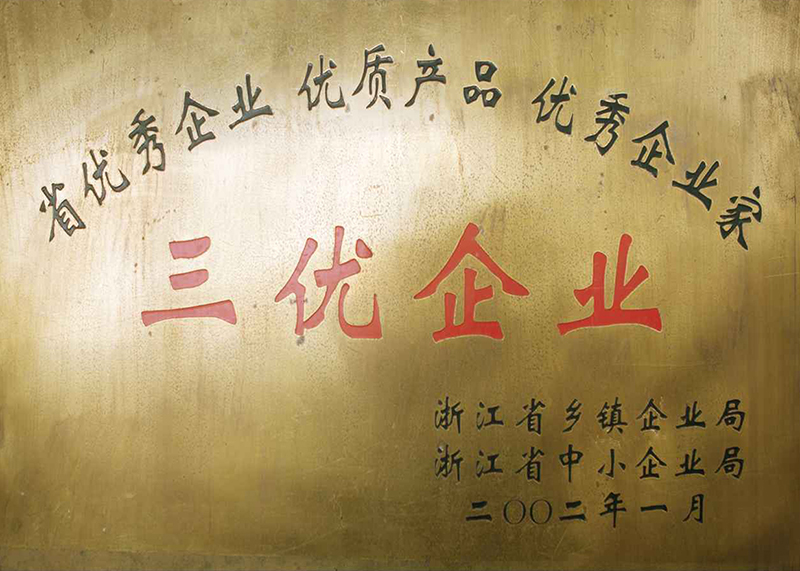 省优秀企业 优质产品 优秀企业家
三优企业
浙江省乡镇企业局
浙江省中小企业局
二〇〇二年一月